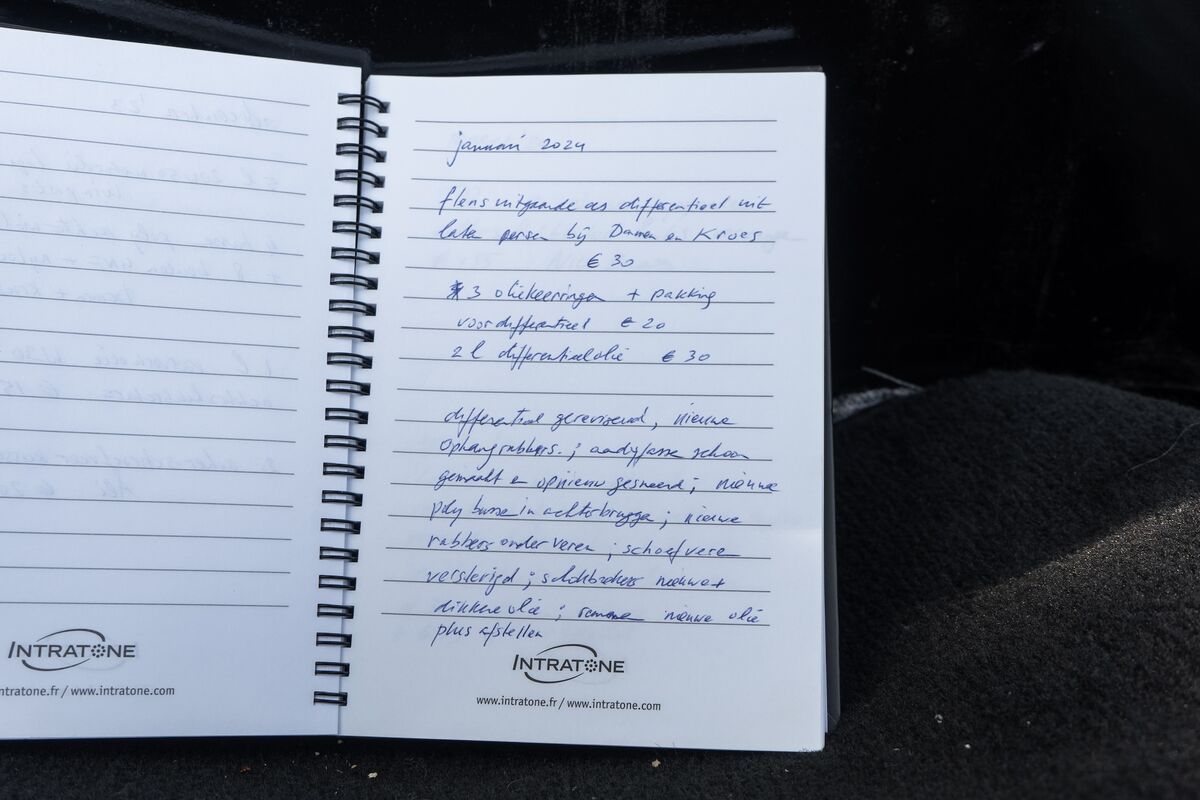 januari 2024
flens uitgaande as differentieel uit
laten persen bij Damen en Kroes
€ 30
3 oliekeeringen + pakking
voordifferentieel € 20
2 l differentieelolie € 30
differential gereviseerd, nieuwe
ophangrubbers.; aandrijfasse schoon
gemaakt en opnieuw gesmeerd; nieuwe
poly busse in achterbrugge; nieuwe
rubbers onder veren; schroefveren
verstevigd; schokbrekers nieuwe +
dikkere olie; remmen nieuwe olie
plus afstellen
INTRATONE
www.intratone.fr / www.intratone.com
INTRATONE
ntratone.fr / www.intratone.com